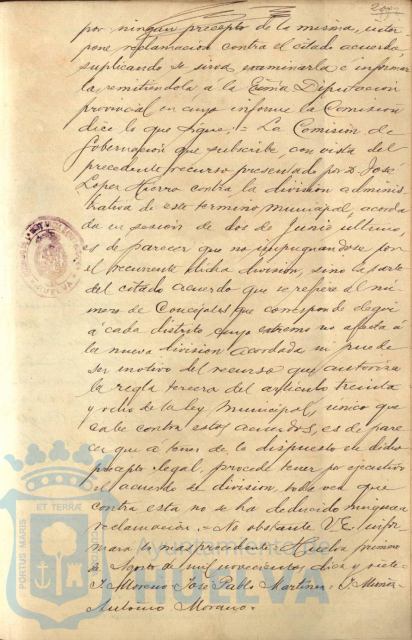 por ningun precepto de la misma, inter
pone reclamacion contra el citado acuerdo,
suplicando se sirva examinarla é informar
la, remitiendola a la Exma Diputacion
provincial en cuyo informe la Comision
dice lo que sigue: = La Comision de
Gobernacion que subscribe con vista del
precedente recurso presentado por D. José
Lopez Hierro contra la division adminis
trativa de este termino municipal, acorda
da en sesion de dos de Junio ultimo,
es de parecer que no impugnandose por
el recurrente dicha division, sino la parte
del citado acuerdo que se refiere al nú
mero de Concejales que corresponde elegir
á cada distrito cuyo extremo no afecta á
la nueva division acordada ni puede
ser motivo del recurso que autoriza
la regla tercera del articulo treinta
y ocho de la ley Municipal, unico que
cabe contra estos acuerdos, es de pare
cer que á tenor de lo dispuesto en dicho
precepto legal, procede tener por ejecutivo
el acuerdo de division, toda vez que
contra esta no se ha deducido ninguna
reclamacion. = No obstante V.E. infor
mara lo mas procedente. Huelva primero
de Agosto de mil novecientos diez y siete =
J. Moreno = José Pablo Martinez = J. Muñoz =
Antonio Morano =
HUELVA
PORTUS MARIS
ET TERRÆ
Ayuntamiento de
HUELVA